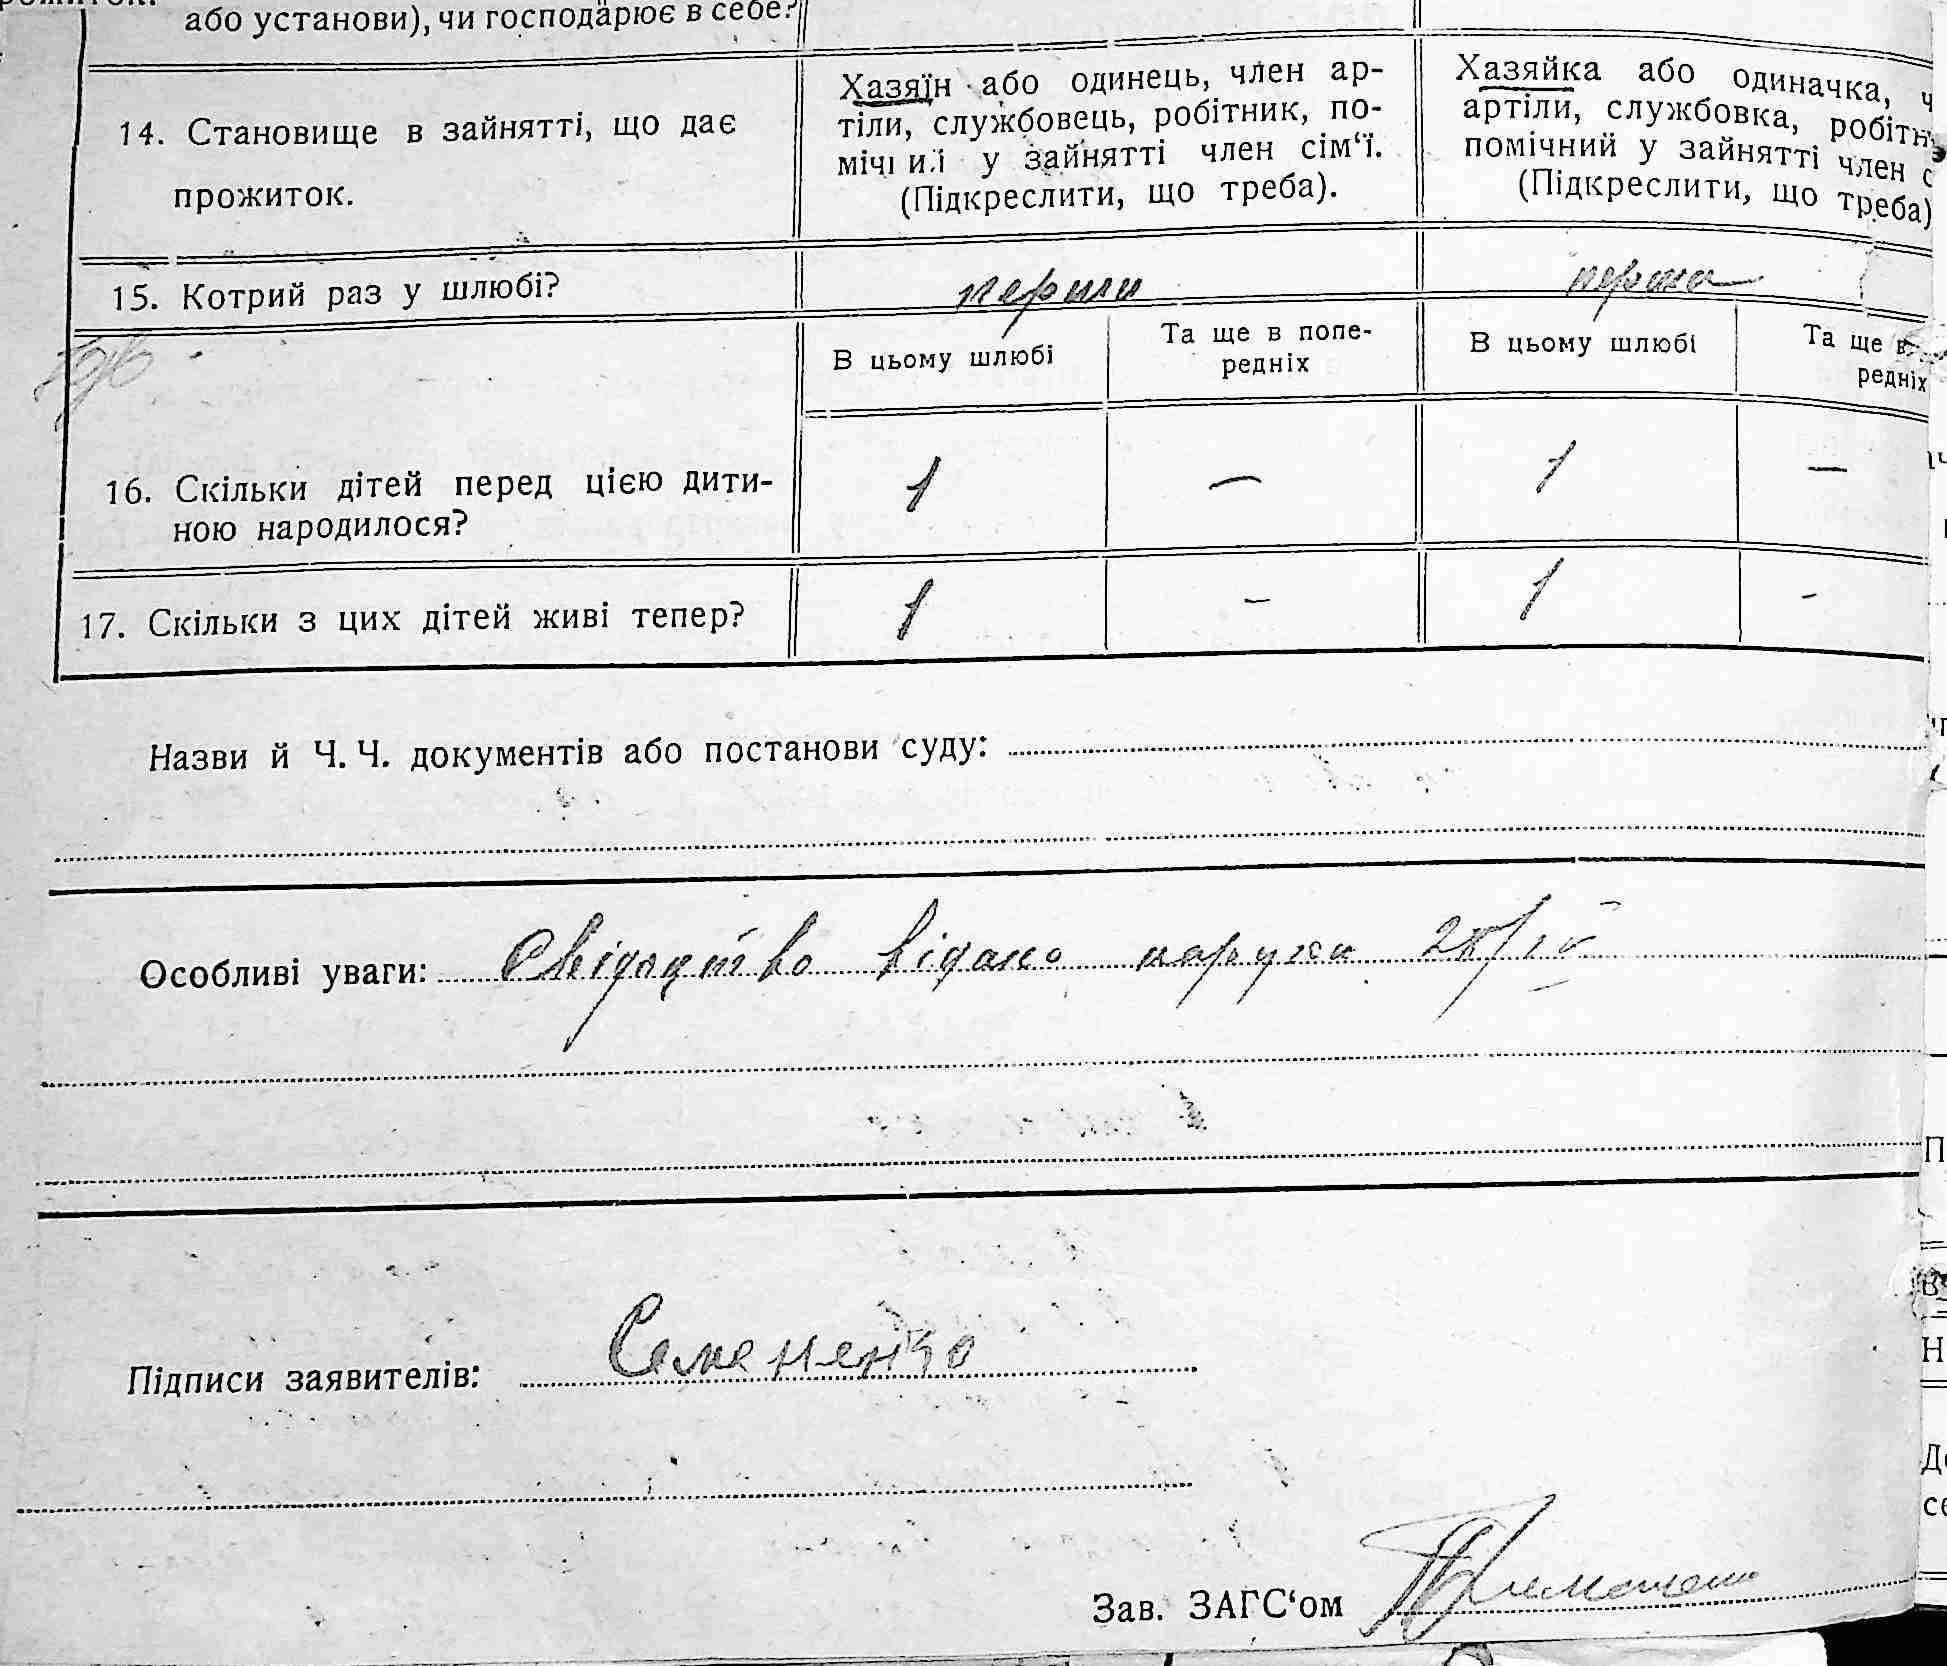 або установи), чи господарює в себе?
14. Становище в зайнятті, що дає
прожиток.
Хазяїн або одинець, член ар-
тіли, службовець, робітник, по-
мічний у зайнятті член сім‘ї.
(Підкреслити, що треба).
Хазяйка або одиначка, ч
артіли, службовка, робітн
помічний у зайнятті член с
(Підкреслити, що треба)
15. Котрий раз у шлюбі?
перши
перша
В цьому шлюбі
Та ще в попе-
редніх
В цьому шлюбі
Та ще в
редніх
16. Скільки дітей перед цією дити-
ною народилося?
1 — 1 —
17. Скільки з цих дітей живі тепер?
1 - 1 -
Назви й Ч. Ч. документів або постанови суду:
Особливі уваги: Свідоцтво відано на руки
Підписи заявителів: Семененко
Зав. ЗАГС‘ом